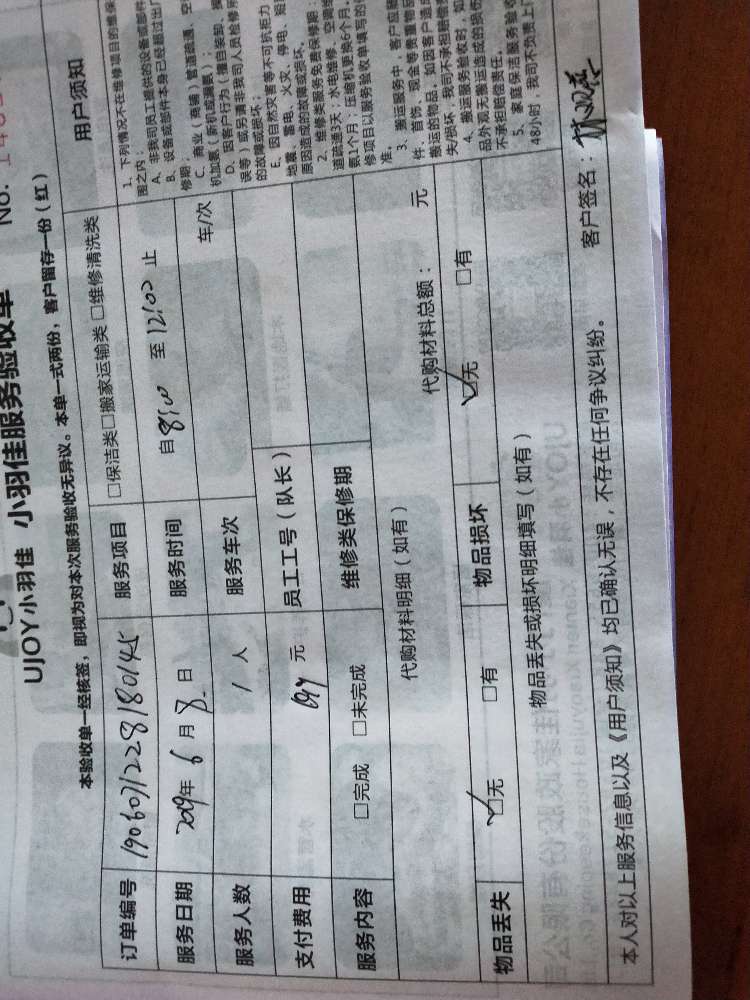 UJOY小羽佳 小羽佳服务验收单 No.
本验收单一经核签，即视为对本次服务验收无异议。本单一式两份，客户留存一份（红）
订单编号 190607122818045 服务项目 □保洁类□搬家运输类 □维修清洗类
服务日期 2019年 6 月 8 日 服务时间 自 8:00 至 12:00 止
服务人数 1 人 服务车次 车/次
支付费用 元 员工工号（队长）
服务内容 □完成 □未完成 维修类保修期
代购材料明细（如有） 代购材料总额： 元
物品丢失 ☑无 □有 物品损坏 ☑无 □有
物品丢失或损坏明细填写（如有）
本人对以上服务信息以及《用户须知》均已确认无误，不存在任何争议纠纷。 客户签名：
用户须知
1、下列情况不在维修项目的维保
围之内：
A、非我司员工提供的设备或部件
B、设备或部件本身已经超过出厂
修期；
C、商业（商铺）管道疏通、空
机加氟（新机或漏氟）；
D、因客户行为（擅自装卸、操
误等）或另请非我司人员检修所
的故障或损坏；
E、因自然灾害等不可抗拒力
地震、雷电、火灾、停电、短
原因造成的故障或损坏。
2、维修类服务免费保修期：
道疏通3天；水电维修、空调
氟1个月；压缩机更换6个月，
修项目以服务验收单填写的
准。
3、搬运服务中，客户应
件、首饰、现金等贵重物品
搬运的物品，如因客户造成
失/损坏，我司不承担赔偿责
4、搬运服务验收时，如
品外观无搬运造成的损伤
不承担赔偿责任。
5、家庭保洁服务验收
48小时，我司不负责上门